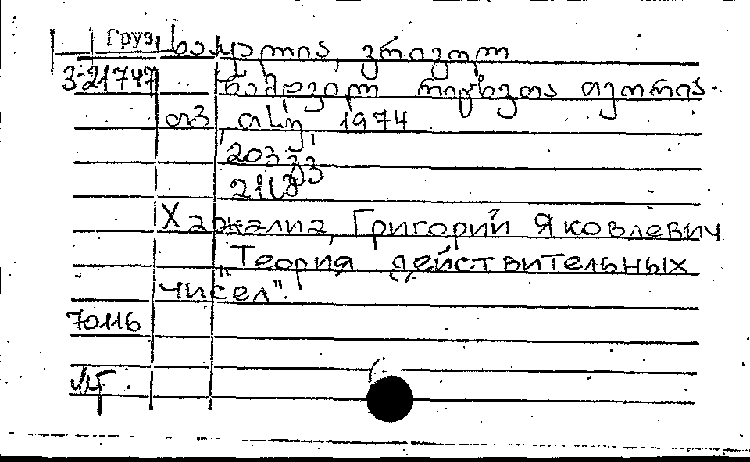 Груз
ხარალია, გრიგოლ
3-21747
ნამდვილ რიცხვთა თეორია.
თბ., თსუ, 1974
203 გვ
2118
Харжалиа, Григорий Яковлевич
"Теория действительных
чисел".
70116